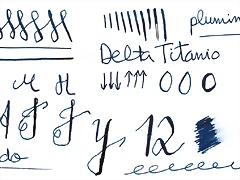 plumin
Delta Titanio
M H
A F F
y 12
do